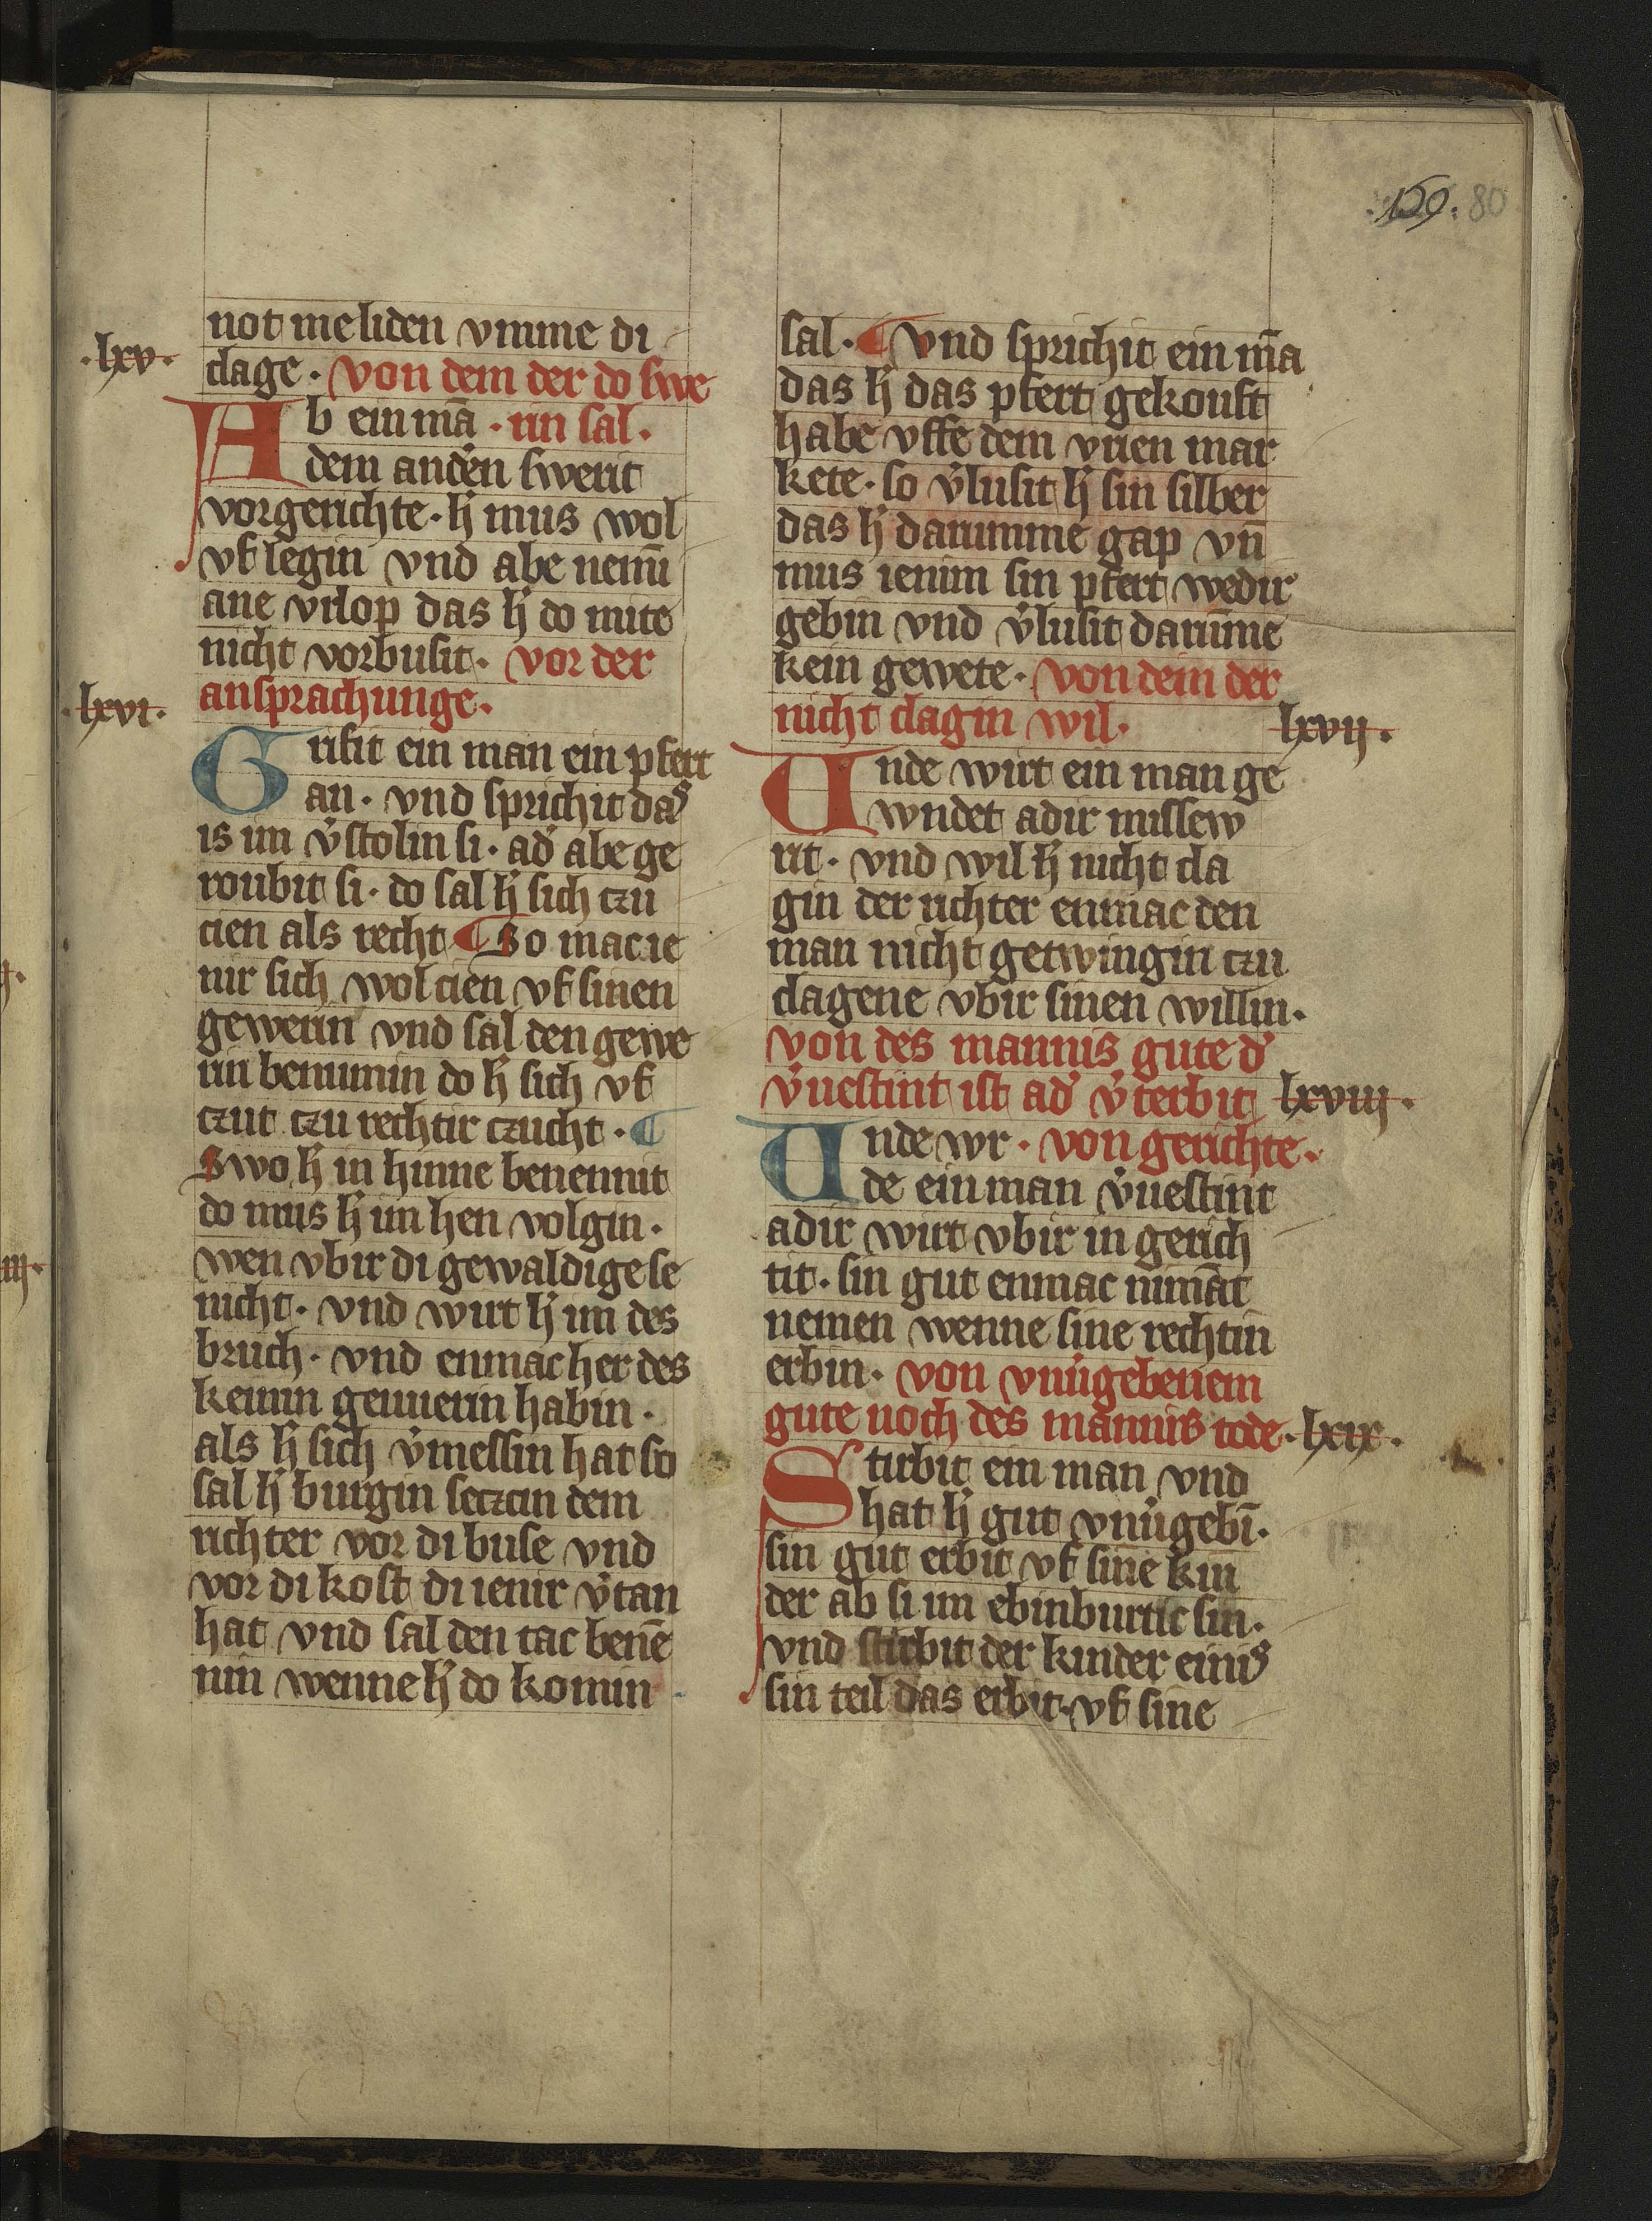 159. 80
not me liden vmme di
.lxv. clage. von dem der do swe
Ab ein mā. rin sal.
dem and̕en swerit
vorgerichte. h̕ mus wol
vf legin vnd abe nemī
ane vrlop das h̕ do mite
nicht vorbusit. vor der
.lxvi. ansprachunge.
Grifit ein man ein pfert
an. vnd sprichit das
is im v̕stolin si. ad̕ abe ge
roubit si. do sal h̕ sich czu
cien als recht ¶ So mac ie
nir sich wol cien vf sinen
gewerin vnd sal den gewe
rin benumin do h̕ sich vf
czut czu rechtir czucht. ¶
Swo h̕ in hinne benennit
do mus h̕ im hen volgin.
wen vbir di gewaldige se
nicht. vnd wirt h̕ im des
bruch. vnd enmac her des
keinin geuuerin habin.
als h̕ sich v̕messin hat so
sal h̕ burgin seczcin dem
richter vor di buse vnd
vor di kost di ienir v̕tan
hat vnd sal den tac benē
nin wenne h̕ do komin
sal. ¶ vnd sprichit ein mā
das h̕ das pfert gekouft
habe vffe dem vrien mar
kete. so v̕lusit h̕ sin silber
das h̕ darumme gap vn̄
mus ienim sin pfert wedir
gebin vnd v̕lusit darūme
kein gewete. von dem der
nicht clagin wil. lxvij.
Vnde wirt ein man ge
wndet adir missew
rit. vnd wil h̕ nicht cla
gin der richter enmac den
man nicht getwingin czu
clagene vbir sinen willin.
von des mannis gute d̕
v̕uestint ist ad̕ v̕terbit lxviij.
Vnde wr. von gerichte.
de ein man v̕uestint
adir wirt vbir in gerich
tit. sin gut enmac nimāt
nemen wenne sine rechtin
erbin. von vnu̕gebenem
gute noch des mannis tode. lxix.
Stirbit ein man vnd
hat h̕ gut vnu̕gebī.
sin gut erbit vf sine kin
der ab si im ebinburtic sin.
vnd stirbit der kinder einis
sin teil das erbit. vf sine